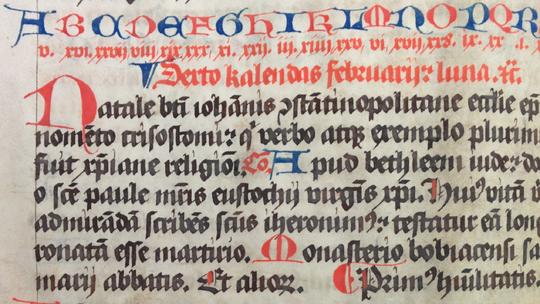 A B C D E F G H I K L M N O P Q R
v. xvi. xxvii viii xix. xxx. xi. xxii. iii. xiiii xxv. vi. xvii xxs. ix. xx .i. x
Sexto kalendas februarij luna.
Natale bti iohānis ɔstātinopolitane ecclie ep
nomēto crisostomi: qͥ verbo atqꝫ exemplo plurim
fuit xp̄iane religiōi. Apud bethleem iude: do
o scē paule mr̄is eustochij virgīs xp̄i. Huiꝰ vitā v
admirādā scribēs scūs iheronimꝰ: testatur eā long
ronatā esse martirio. Monasterio bobiacensi sa
marij abbatis. Et alioꝝ. Primꝰ hūilitatis.